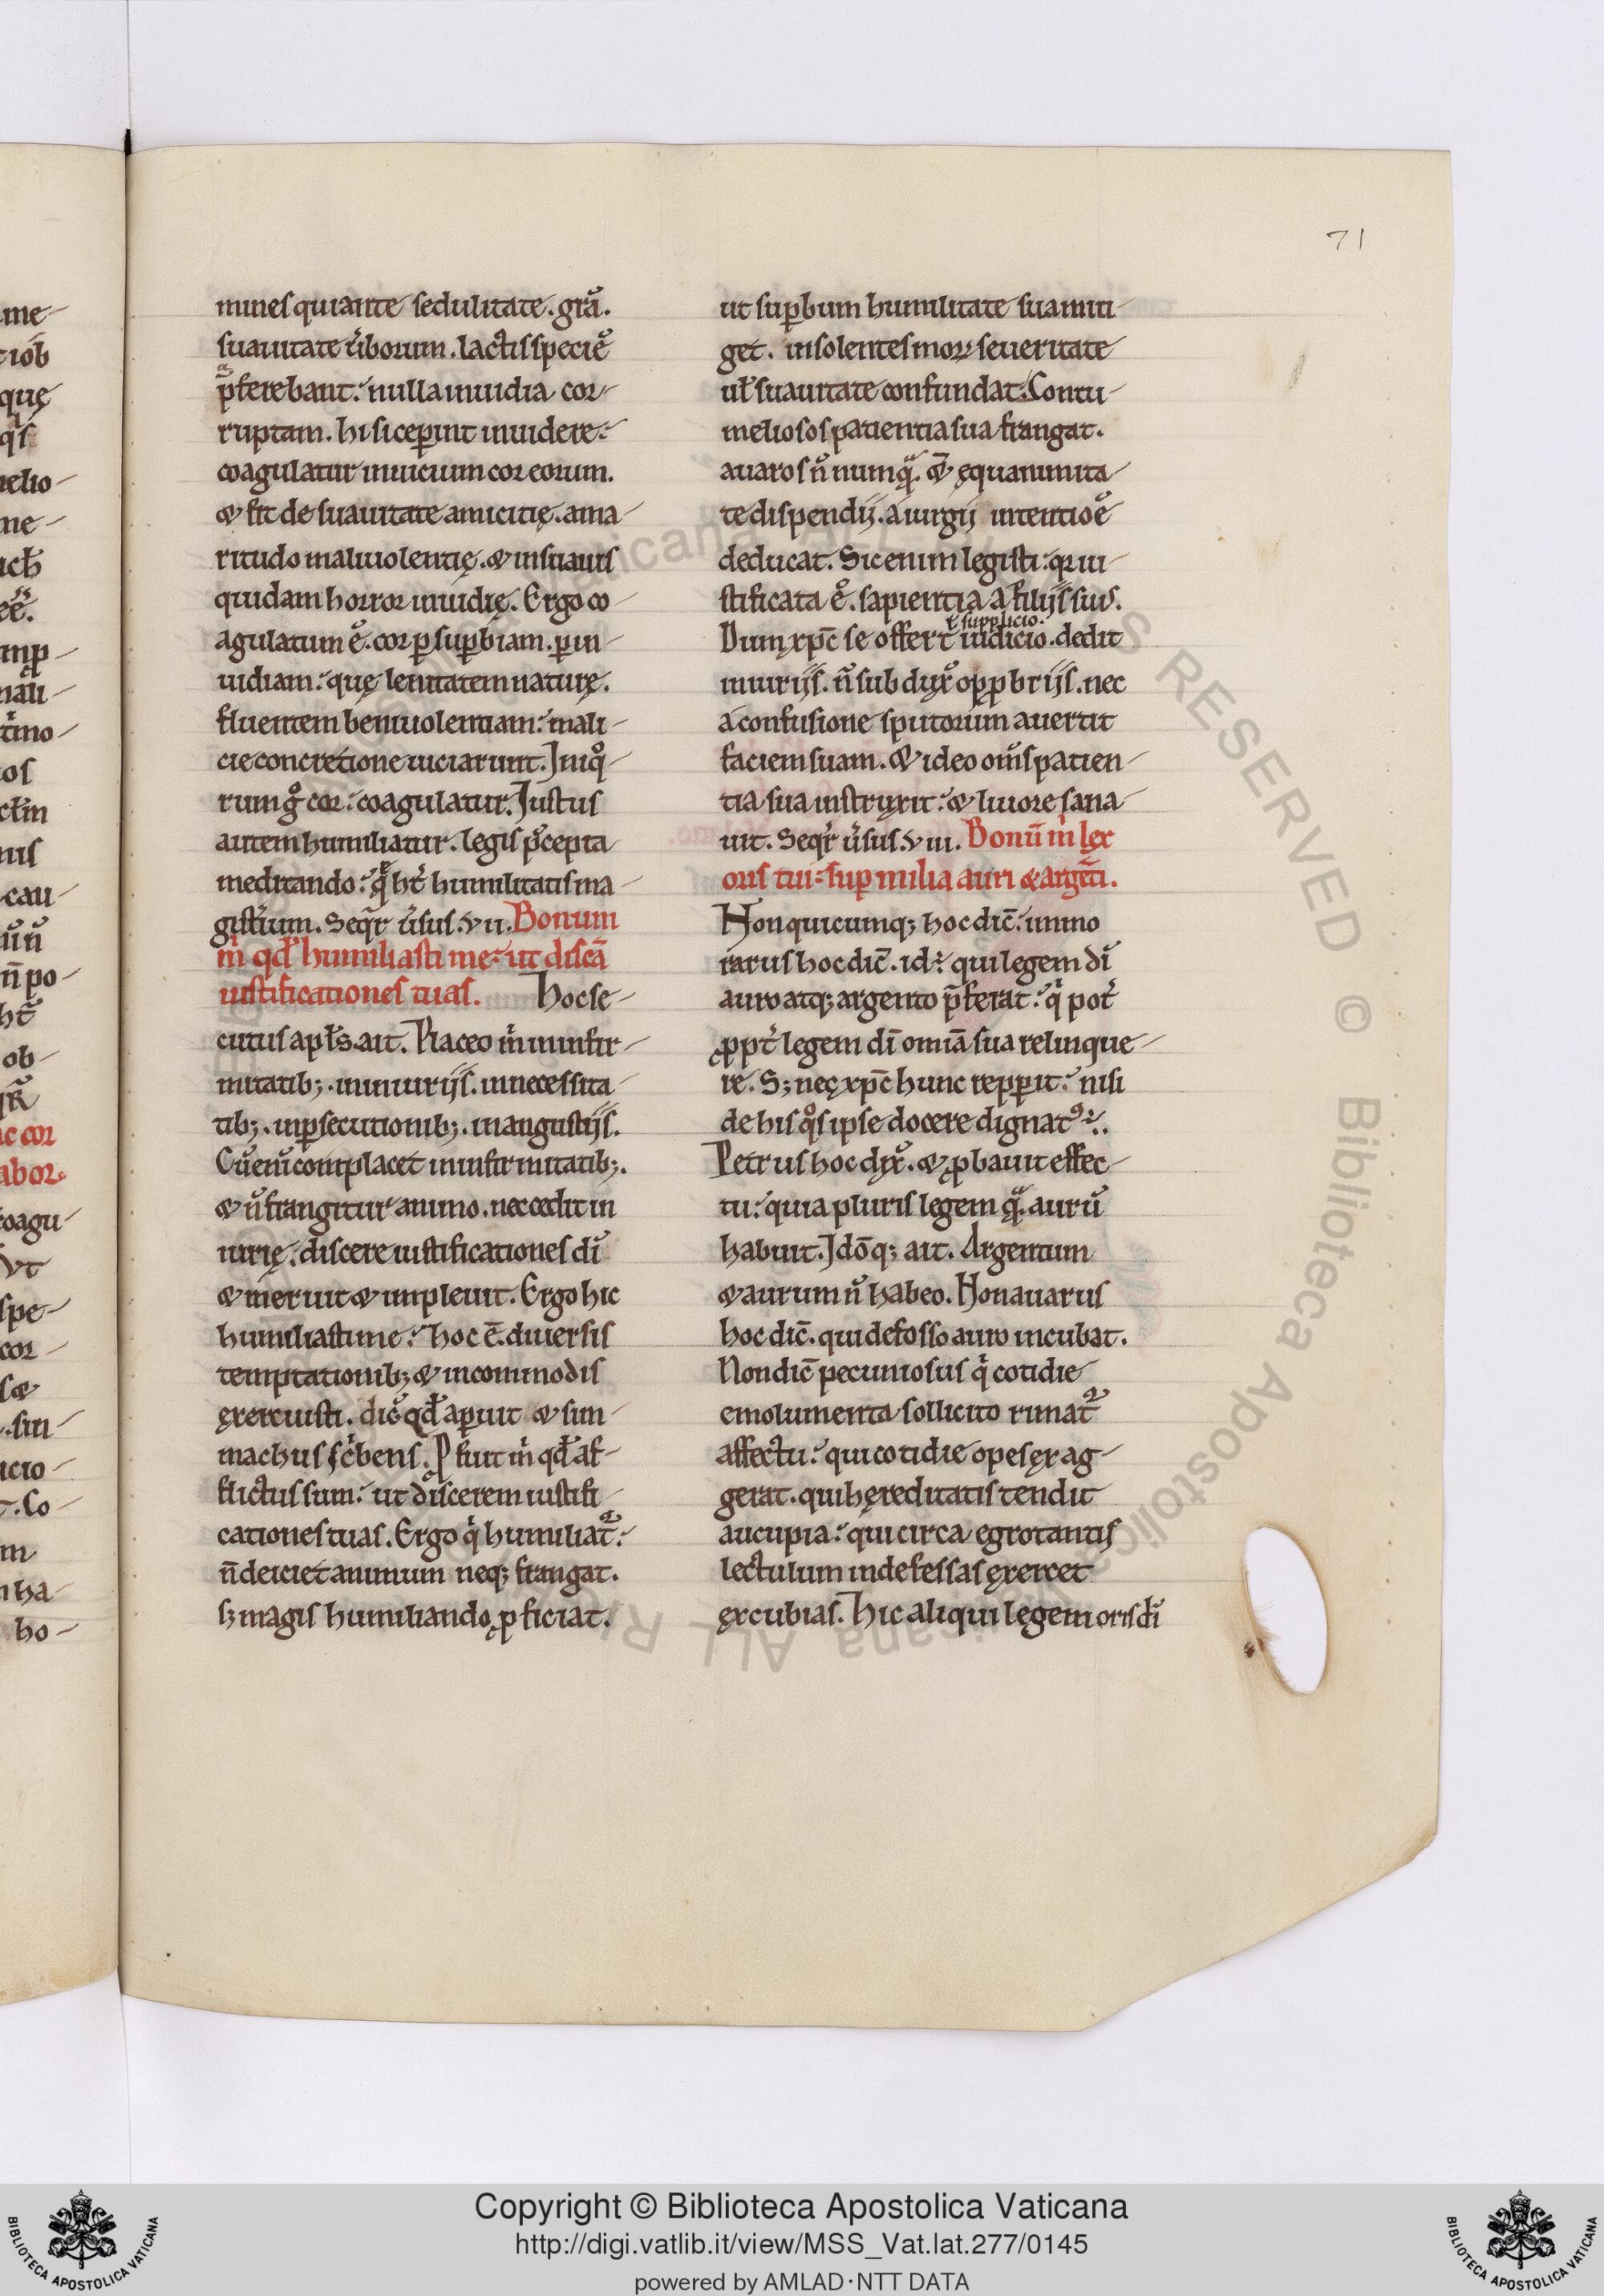 71
mines qui ante sedulitate. grã.
suauitate ũborum. lactis specie
p̃ferebant: nulla inuidia cor-
ruptam. hi si ceperint inuidere:
coagulatur inuicium cor eorum.
& fit de suauitate amicitię. ama-
ritudo maliuolentię. & insuauis
quidam horror inuidię. Ergo co-
agulatum ē. cor ꝑ suꝑbiam. ꝑ in-
uidiam: quę lenitatem naturę.
fluentem beniuolentiam: mali-
cie concretione uiciarunt. Iniqͦ-
rum gͦ cor: coagulatur. Iustus
autem humiliatur. legis p̃cepta
meditando: qͥ hт̃ humilitatis ma-
gistͥium. Seqr̃ ũsus. vii. Bonum
m̃ qđ humiliasti me: ut discã
iustificationes tuas. Hoc se-
cutus apłs ait. Placeo m̃ in infir-
mitatib;. in iniuriis. in necessita-
tib;. in ꝑsecutionib;. in angustiis.
Cũ enĩ complacet in infirmitatib;.
& ñ frangitur animo. nec cedit in
iurię. discere iustificationes dĩ
& meruit & impleuit. Ergo hic
humiliasti me: hoc ē. diuersis
temptationib; & incommodis
ęxercuisti. qđ aperuit & sim-
machus sc̃bens. ꝓfuit m̃ qđ af-
flictus sum: ut discerem iustifi-
cationes tuas. Ergo qͥ humiliat̃:
ñ deiciet animum neq; frangat.
s; magis humiliando ꝓficiat.
ut suꝑbum humilitate sua miti-
get. insolentes mox seueritate
uł suauitate confundat. Contu-
meliosos patientia sua frangat.
auaros ñ numqͣ. & ęquanimita-
te dispendii. a iurgii intentiõe
deducat. Sic enim legisti: qͥ iu-
stificata ē. sapientia a filiis suis.
ł supplicio.
Dum xp̄c se offert iudicio. dedit
iniuriis. ñ subdux̃ opꝓbriis. nec
a confusione sputorum auertit
faciem suam. & ideo om̃s patien-
tia sua instruxit: & liuore sana-
uit. Seqr̃ ũsus. viii. Bonũ m̃ lex
oris tui: suꝑ milia auri & argẽti.
Non quicumq; hoc dic̃: immo
rarus hoc dic̃. id: qui legem dĩ
auro atq; argento p̃ferat: qͥ pot̃
ꝓpt̃ legem dĩ omĩa sua relinque-
re. S; nec xp̄c hunc repperit: nisi
de his qͦs ipse docere dignatꝰ:.
Petrus hoc dix̃. & ꝓbauit effec-
tu: quia pluris legem qͣ aurũ
habuit. Idõq; ait. Argentum
& aurum ñ habeo. Non auarus
hoc dic̃. qui defosso auro incubat.
Non dic̃ pecuniosus qͥ cotidie
emolumenta sollicito rimat̃
affectu: qui cotidie opes ęxag-
gerat. qui hęreditatis tendit
aucupia: qui circa egrotantis
lectulum indefessas ęxercet
ęxcubias. Hic aliqui legem oris dĩ
Copyright © Biblioteca Apostolica Vaticana
http://digi.vatlib.it/view/MSS_Vat.lat.277/0145
powered by AMLAD·NTT DATA